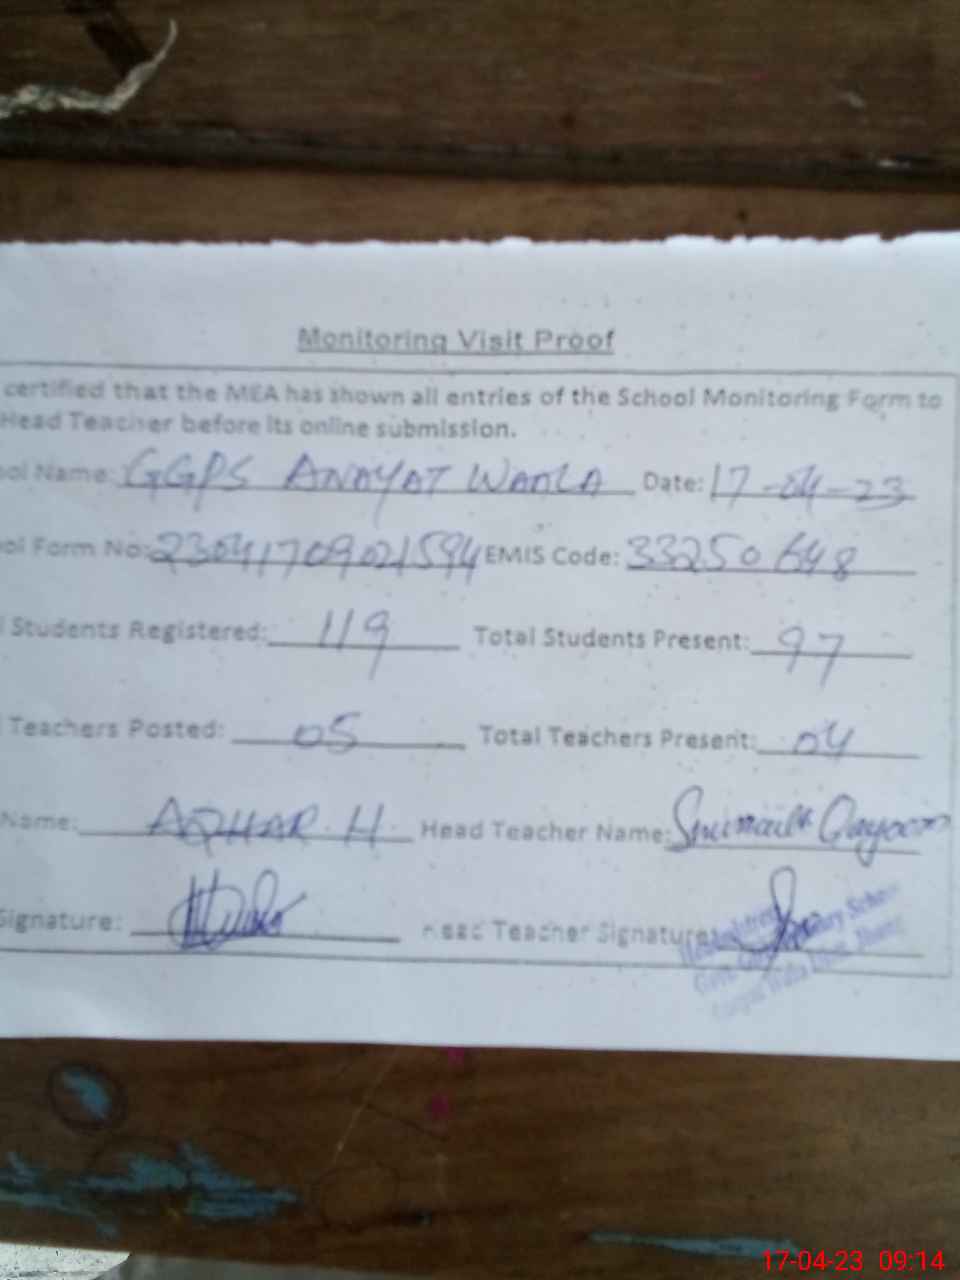 Monitoring Visit Proof
certified that the MEA has shown all entries of the School Monitoring Form to
Head Teacher before its online submission.
ool Name: GGPS ANAYAT WAALA Date: 17-04-23
ool Form No: 23041709021594 EMIS Code: 33250648
l Students Registered: 119 Total Students Present: 97
l Teachers Posted: 05 Total Teachers Present: 04
Name: AQHAR.H. Head Teacher Name: Qayoom
Signature: Head Teacher Signature:
17-04-23 09:14